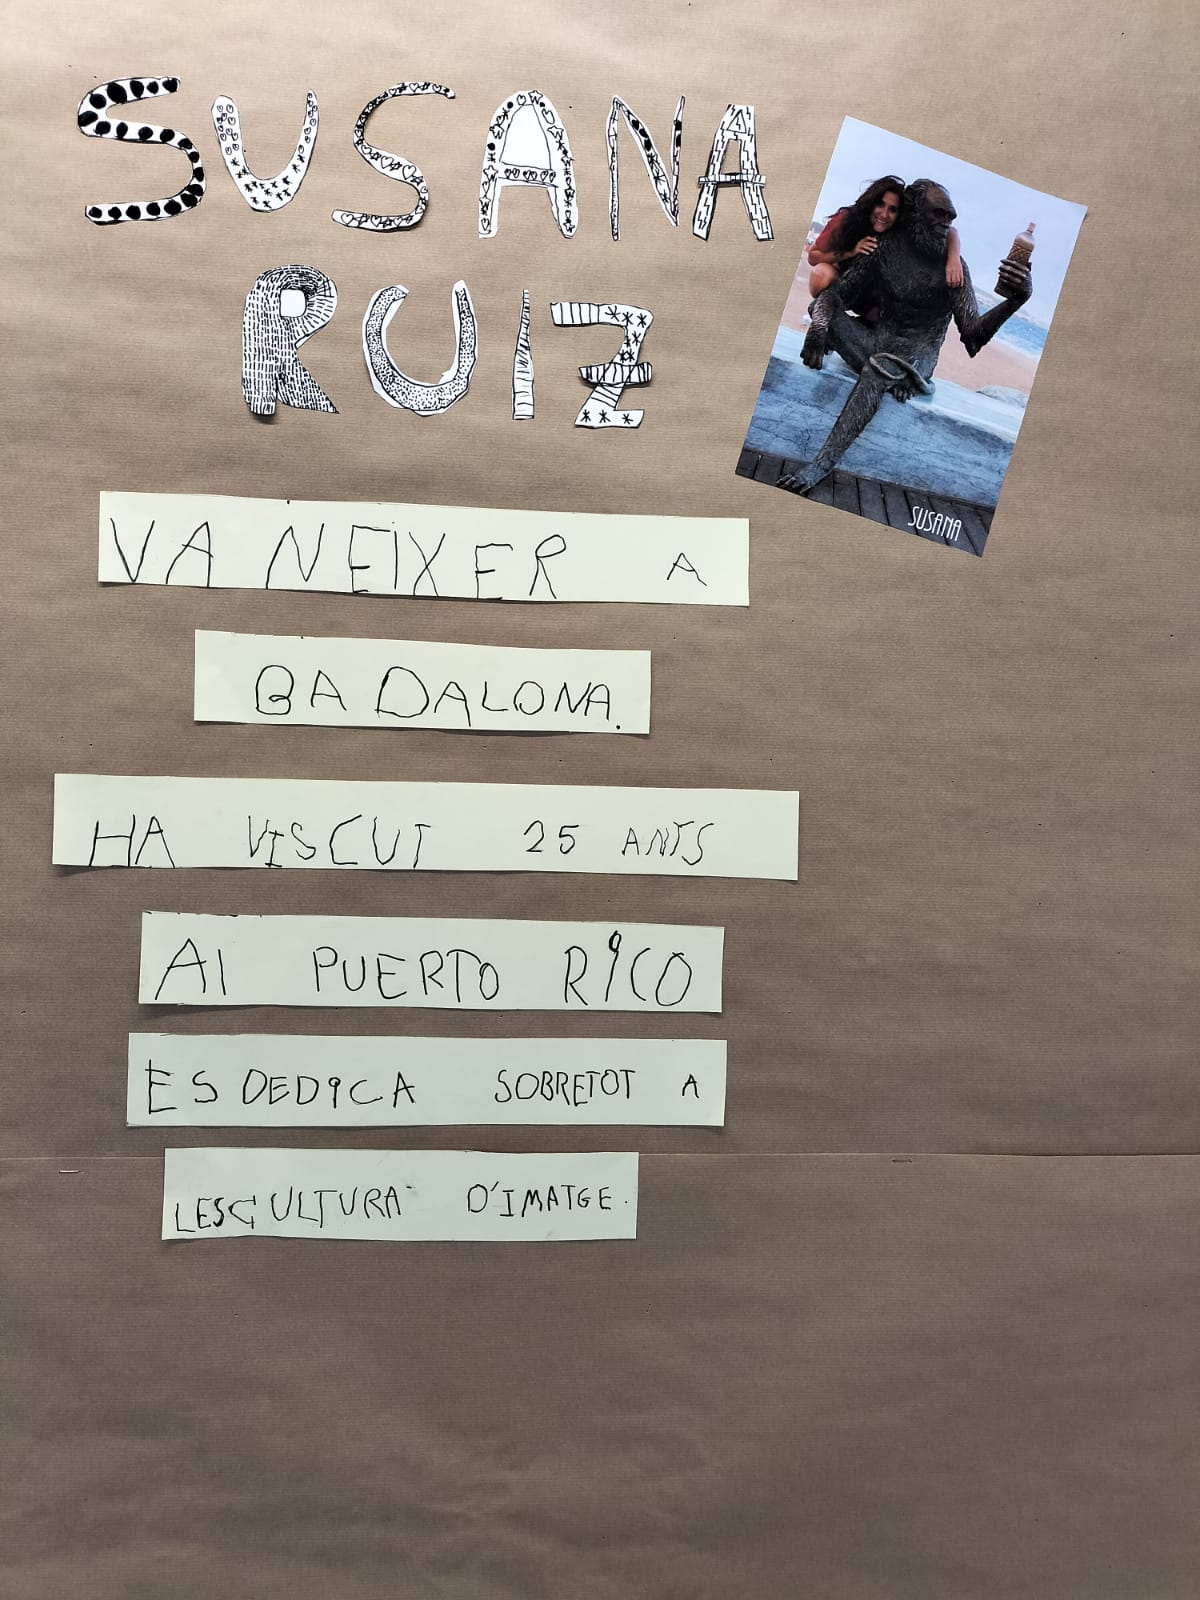 SUSANA
RUIZ
SUSANA
VA NEIXER A
BADALONA.
HA VISCUT 25 ANTS
AI PUERTO RICO
ES DEDICA SOBRETOT A
LESCULTURA D'IMATGE.